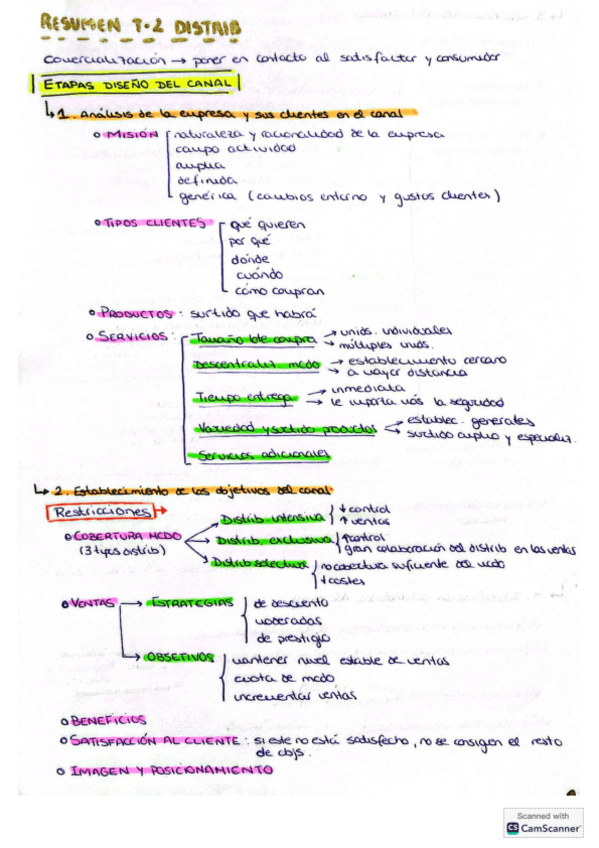 RESUMEN T-2 DISTRIB
Comercialización → poner en contacto al satisfactor y consumidor
ETAPAS DISEÑO DEL CANAL
↳ 1. Análisis de la empresa y sus clientes en el canal
o MISIÓN naturaleza y racionalidad de la empresa
campo actividad
amplia
definida
genérica (cambios entorno y gustos clientes)
o TIPOS CLIENTES qué quieren
por qué
dónde
cuándo
cómo compran
o PRODUCTOS: surtido que habrá
o SERVICIOS: Tamaño lote compra → unids. individuales
→ múltiples unids.
Descentraliz mcdo → establecimiento cercano
→ a mayor distancia
Tiempo entrega → inmediata
→ le importa más la seguridad
Variedad y surtido productos → establec. generales
→ surtido amplio y especializ.
Servicios adicionales
↳ 2. Establecimiento de los objetivos del canal
Restricciones →
o COBERTURA MCDO → Distrib intensiva ↓ control
(3 types distrib) ↑ ventas
→ Distrib. exclusiva ↑ control
gran colaboración del distrib en las ventas
→ Distrib selectiva no cobertura suficiente del mcdo
↓ costes
o VENTAS → ESTRATEGIAS de descuento
moderadas
de prestigio
→ OBJETIVOS mantener nivel estable de ventas
cuota de mcdo
incrementar ventas
o BENEFICIOS
o SATISFACCIÓN AL CLIENTE: si este no está satisfecho, no se consigen el resto
de objs.
o IMAGEN Y POSICIONAMIENTO
Scanned with
CS CamScanner